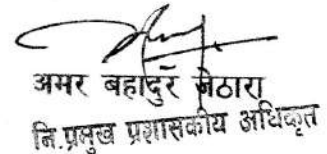 अमर बहादुर जेठारा
नि.प्रमुख प्रशासकीय अधिकृत